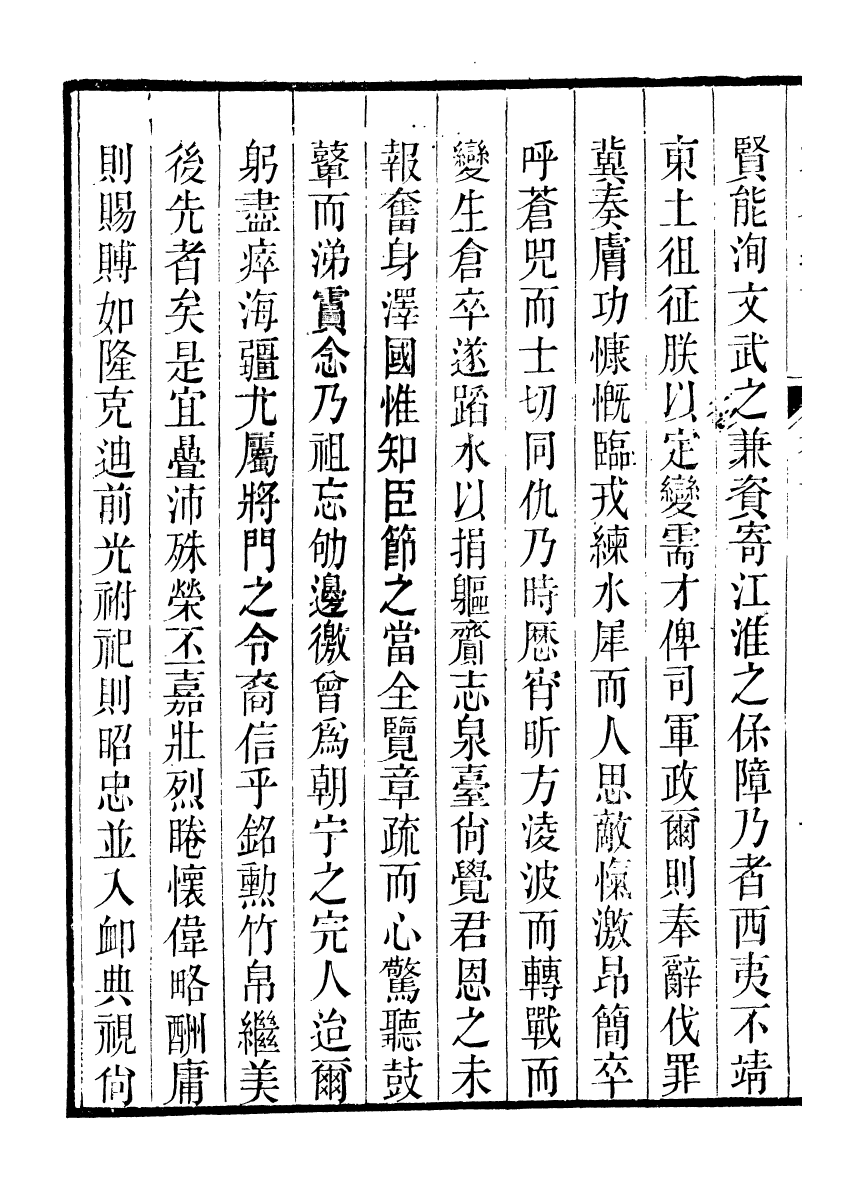 賢能洵文武之兼資寄江淮之保障乃者西夷不靖
東土徂征朕以定變需才俾司軍政爾則奉辭伐罪
冀奏膚功慷慨臨戎練水犀而人思敵愾激昂簡卒
呼蒼兕而士切同仇乃時歷宵昕方淩波而轉戰而
變生倉卒遂蹈水以捐軀齎志泉臺尙覺君恩之未
報奮身澤國惟知臣節之當全覽章疏而心驚聽鼓
鼙而涕賨念乃祖忘劬邊徼曾爲朝宁之完人迨爾
躬盡瘁海疆尤屬將門之令裔信乎銘勲竹帛繼美
後先者矣是宜疊沛殊榮丕嘉壯烈睠懷偉略酬庸
則賜賻如隆克迪前光祔祀則昭忠並入卹典視尙